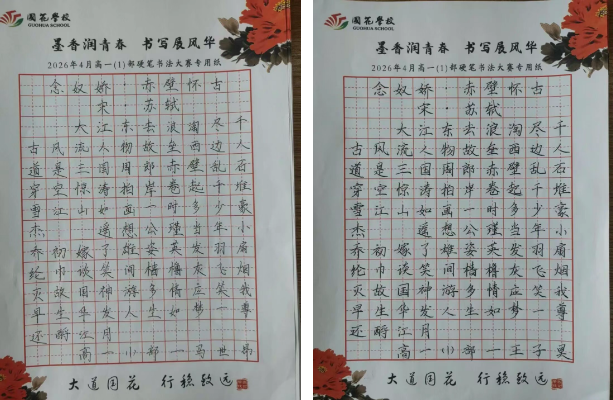 國花學校
GUOHUA SCHOOL
墨香润青春 书写展风华
2026年4月高一(1)部硬笔书法大赛专用纸
念奴娇·赤壁怀古
宋·苏轼
大江东去浪淘尽千
古风流人物故垒西边人
道是三国周郎赤壁乱石
穿空惊涛拍岸卷起千堆
雪江山如画一时多少豪
杰 遥想公瑾当年小
乔初嫁了雄姿英发羽扇
纶巾谈笑间樯橹灰飞烟
灭故国神游多情应笑我
早生华发人生如梦一尊
还酹江月
高一小部一马世昂
大道国花 行稳致远
國花學校
GUOHUA SCHOOL
墨香润青春 书写展风华
2026年4月高一(1)部硬笔书法大赛专用纸
念奴娇·赤壁怀古
宋·苏轼
大江东去浪淘尽千
古风流人物故垒西边人
道是三国周郎赤壁乱石
穿空惊涛拍岸卷起千堆
雪江山如画一时多少豪
杰 遥想公瑾当年小
乔初嫁了雄姿英发羽扇
纶巾谈笑间樯橹灰飞烟
灭故国神游多情应笑我
早生华发人生如梦一尊
还酹江月
高一(1)部一王子昊
大道国花 行稳致远